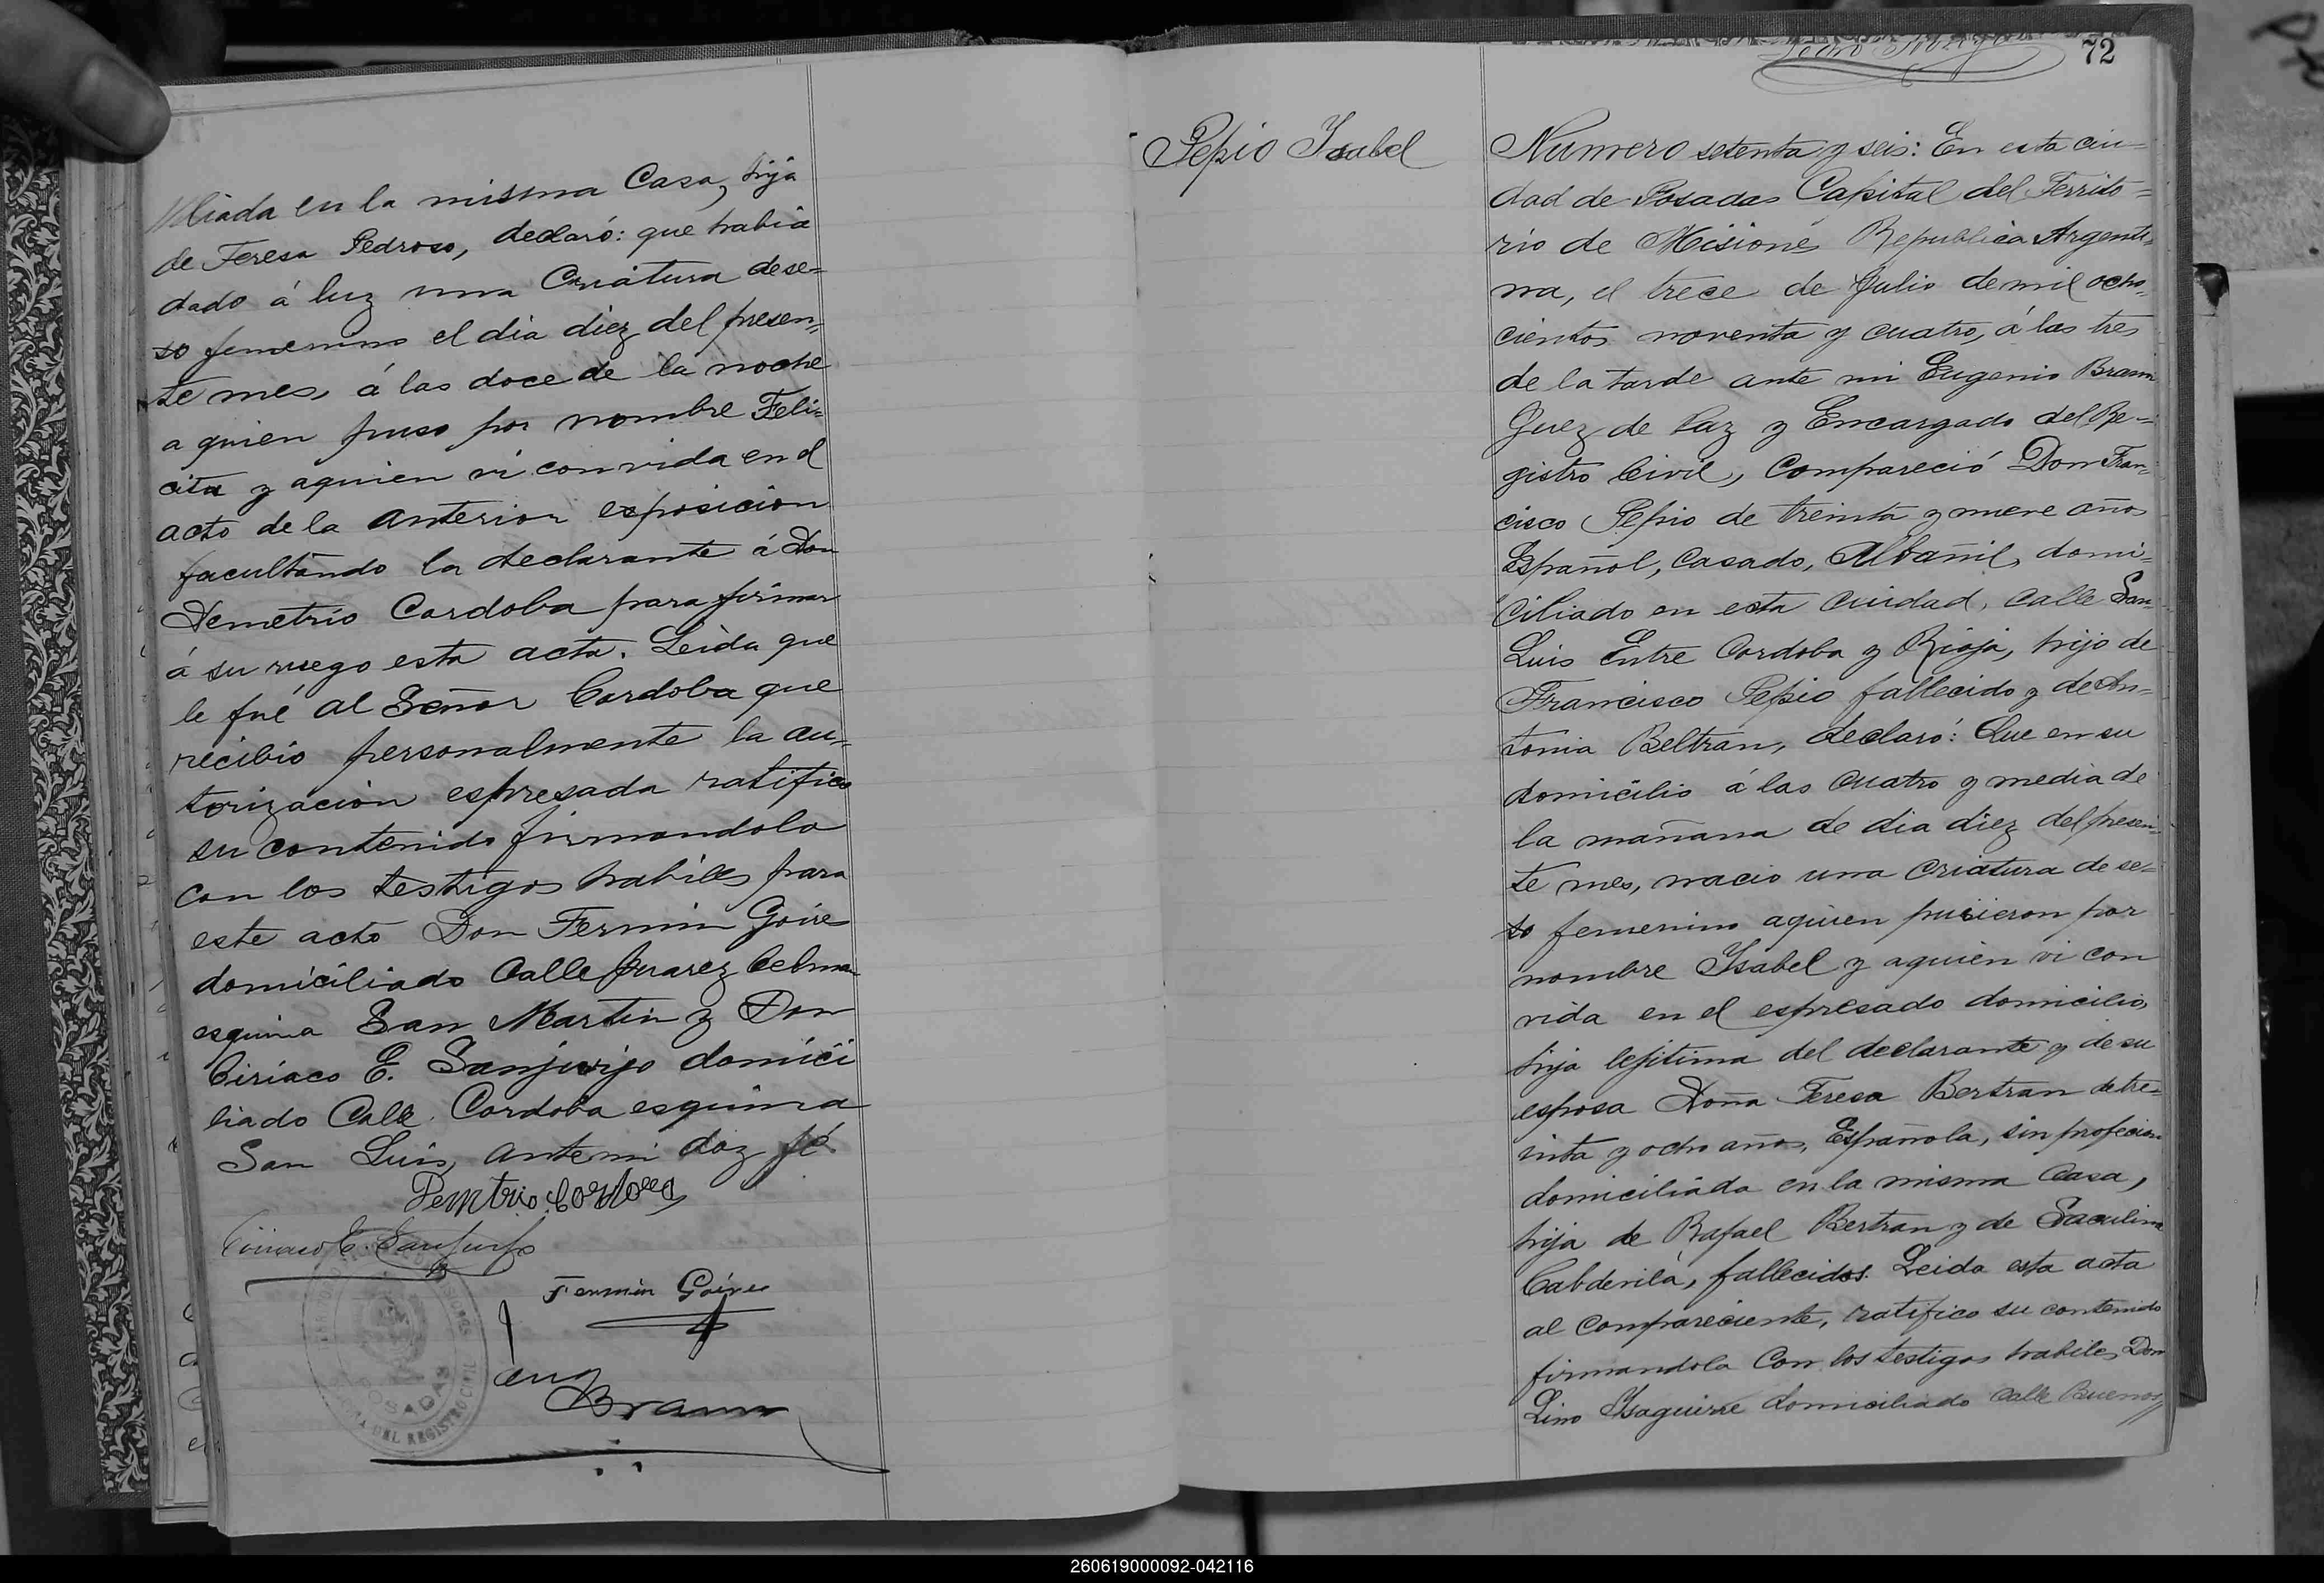 iliada en la misma Casa, hija
de Teresa Pedroso, declaró: que habia
dado á luz una Criatura de se=
so femenino el dia diez del presen=
te mes, á las doce de la noche
a quien puso por nombre Feli=
cita y aquien vi con vida en el
acto de la anterior exposicion
facultando la declarante á Don
Demetrio Cordoba para firmar
á su ruego esta acta. Leida que
le fué al Señor Cordoba que
recibio personalmente la au=
torizacion espresada ratifico
su contenido firmandola
con los testigos habiles para
este acto Don Fermin Goire
domiciliado Calle Juarez Celman
esquina San Martin y Don
Ciriaco E. Sanjurjo domici
liado Calle Cordoba esquina
San Luis, ante mi doy fé
Demtrio Cordova
Ciriaco E. Sanjurjo
Fermin Goires
Eug
Braun
POSADAS
DEL REGISTRO CIVIL
72
Pepio Ysabel
Numero setenta y seis: En esta ciu=
dad de Posadas Capital del Territo=
rio de Misiones Republica Argenti=
na, el trece de Julio de mil ocho=
cientos noventa y cuatro, á las tres
de la tarde ante mi Eugenio Braun
Juez de Paz y Encargado del Re=
gistro Civil, Compareció Don Fran=
cisco Pepio de treinta y nueve años
Español, Casado, Albañil, domi=
ciliado en esta Ciudad, Calle San
Luis Entre Cordoba y Rioja, hijo de
Francisco Pepio fallecido y de An=
tonia Beltran, declaró: Que en su
domicilio á las cuatro y media de
la mañana de dia diez del presen=
te mes, nacio una Criatura de se=
so femenino aquien pusieron por
nombre Ysabel y aquien vi con
vida en el espresado domicilio,
hija lejitima del declarante y de su
esposa Doña Teresa Bertran de tre=
inta y ocho años, Española, sin profecion
domiciliada en la misma Casa,
hija de Rafael Bertran y de
fallecidos. Leida esta acta
al Compareciente, ratifico su contenido
firmandola Con los testigos habiles Don
Lino Ysaguirre domiciliado Calle Buenos
260619000092-042116